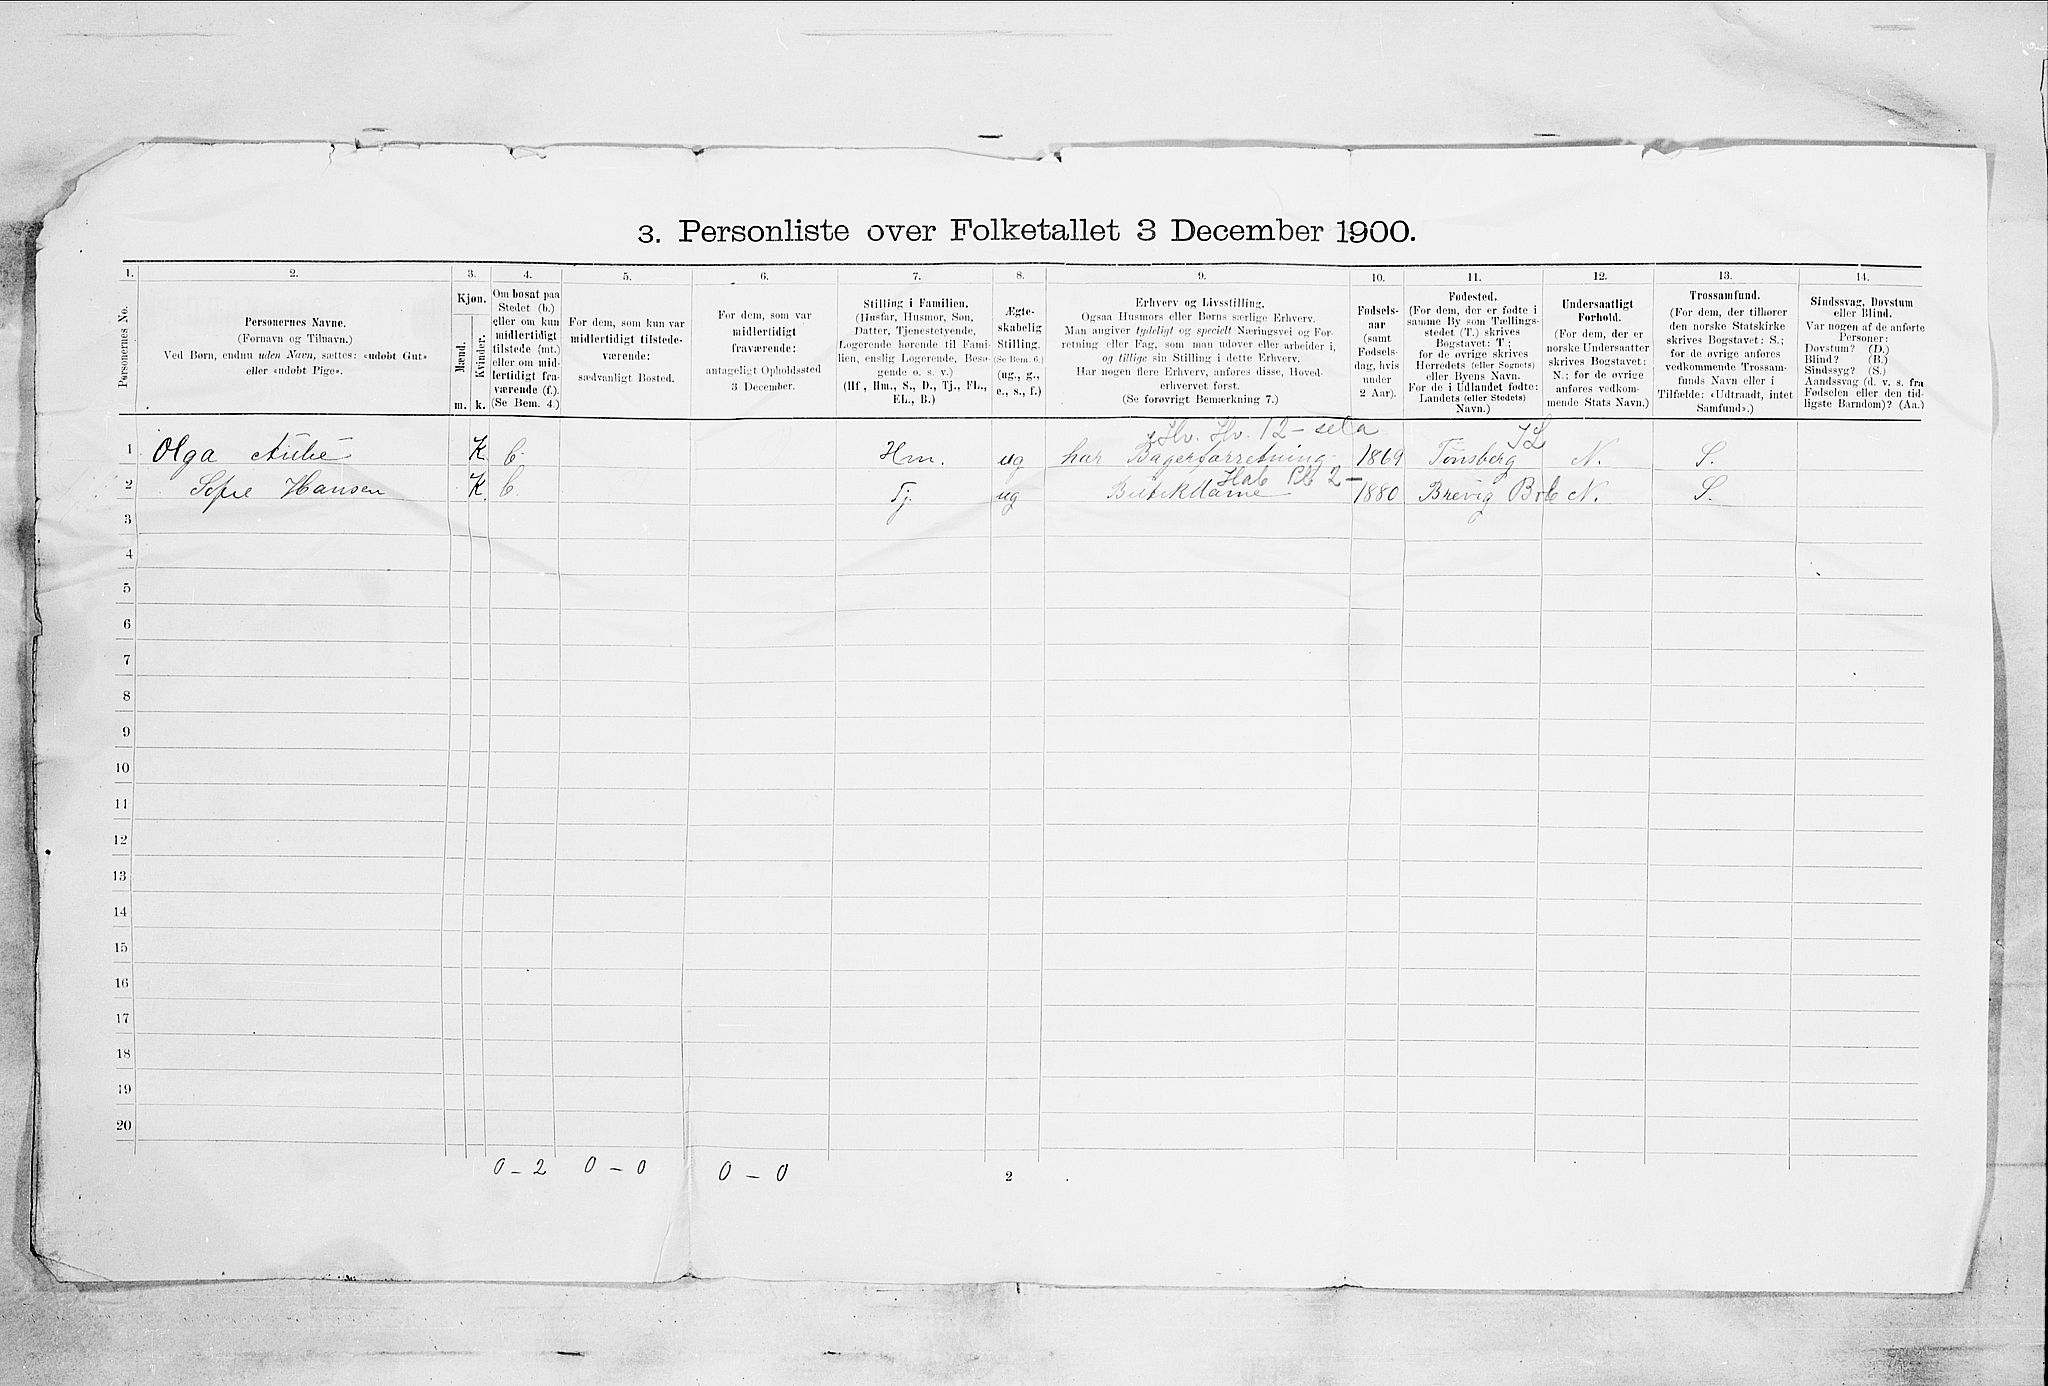 3. Personliste over Folketallet 3 December 1900.
1. 2. 3. 4. 5. 6. 7. 8. 9. 10. 11. 12. 13. 14.
Personernes No.
Personernes Navne.
(Fornavn og Tilnavn.)
Ved Børn, endnu uden Navn, sættes: «udøbt Gut»
eller «udøbt Pige».
Kjøn.
Mænd.
Kvinder.
m. k.
Om bosat paa
Stedet (b.)
eller om kun
midlertidigt
tilstede (mt.)
eller om mid-
lertidigt fra-
værende (f.).
(Se Bem. 4.)
For dem, som kun var
midlertidigt tilstede-
værende:
sædvanligt Bosted.
For dem, som var
midlertidigt
fraværende:
antageligt Opholdssted
3 December.
Stilling i Familien.
(Husfar, Husmor, Søn,
Datter, Tjenestetyende,
Logerende hørende til Fami-
lien, enslig Logerende, Besø-
gende o. s. v.)
(Hf, Hm., S., D., Tj., FL.,
EL., B.)
Ægte-
skabelig
Stilling.
(Se Bem. 6.)
(ug., g.,
e., s., f.)
Erhverv og Livsstilling.
Ogsaa Husmors eller Børns særlige Erhverv.
Man angiver tydeligt og specielt Næringsvei og For-
retning eller Fag, som man udøver eller arbeider i,
og tillige sin Stilling i dette Erhverv.
Har nogen flere Erhverv, anføres disse, Hoved-
erhvervet først.
(Se forøvrigt Bemærkning 7.)
Fødsels-
aar
(samt
Fødsels-
dag, hvis
under
2 Aar).
Fødested.
(For dem, der er fødte i
samme By som Tællings-
stedet (T.) skrives
Bogstavet: T;
for de øvrige skrives
Herredets (eller Sognets)
eller Byens Navn.
For de i Udlandet fødte:
Landets (eller Stedets)
Navn.)
Undersaatligt
Forhold.
(For dem, der er
norske Undersaatter
skrives Bogstavet:
N.; for de øvrige
anføres vedkom-
mende Stats Navn.)
Trossamfund.
(For dem, der tilhører
den norske Statskirke
skrives Bogstavet: S.;
for de øvrige anføres
vedkommende Trossam-
funds Navn eller i
Tilfælde: «Udtraadt, intet
Samfund».)
Sindssvag, Døvstum
eller Blind.
Var nogen af de anførte
Personer:
Døvstum? (D.)
Blind? (B.)
Sindssyg? (S.)
Aandssvag (d. v. s. fra
Fødselen eller den tid-
ligste Barndom)? (Aa.)
Hv. Hv. 12-
1 Olga K b. Hm. ug har Bagerforretning 1869 Tønsberg N. S.
2 Sofie Hansen K. b. Tj. ug Butikdame 2- 1880 Brevig N. S.
3
4
5
6
7
8
9
10
11
12
13
14
15
16
17
18
19
20
0-2 0-0 0-0 2